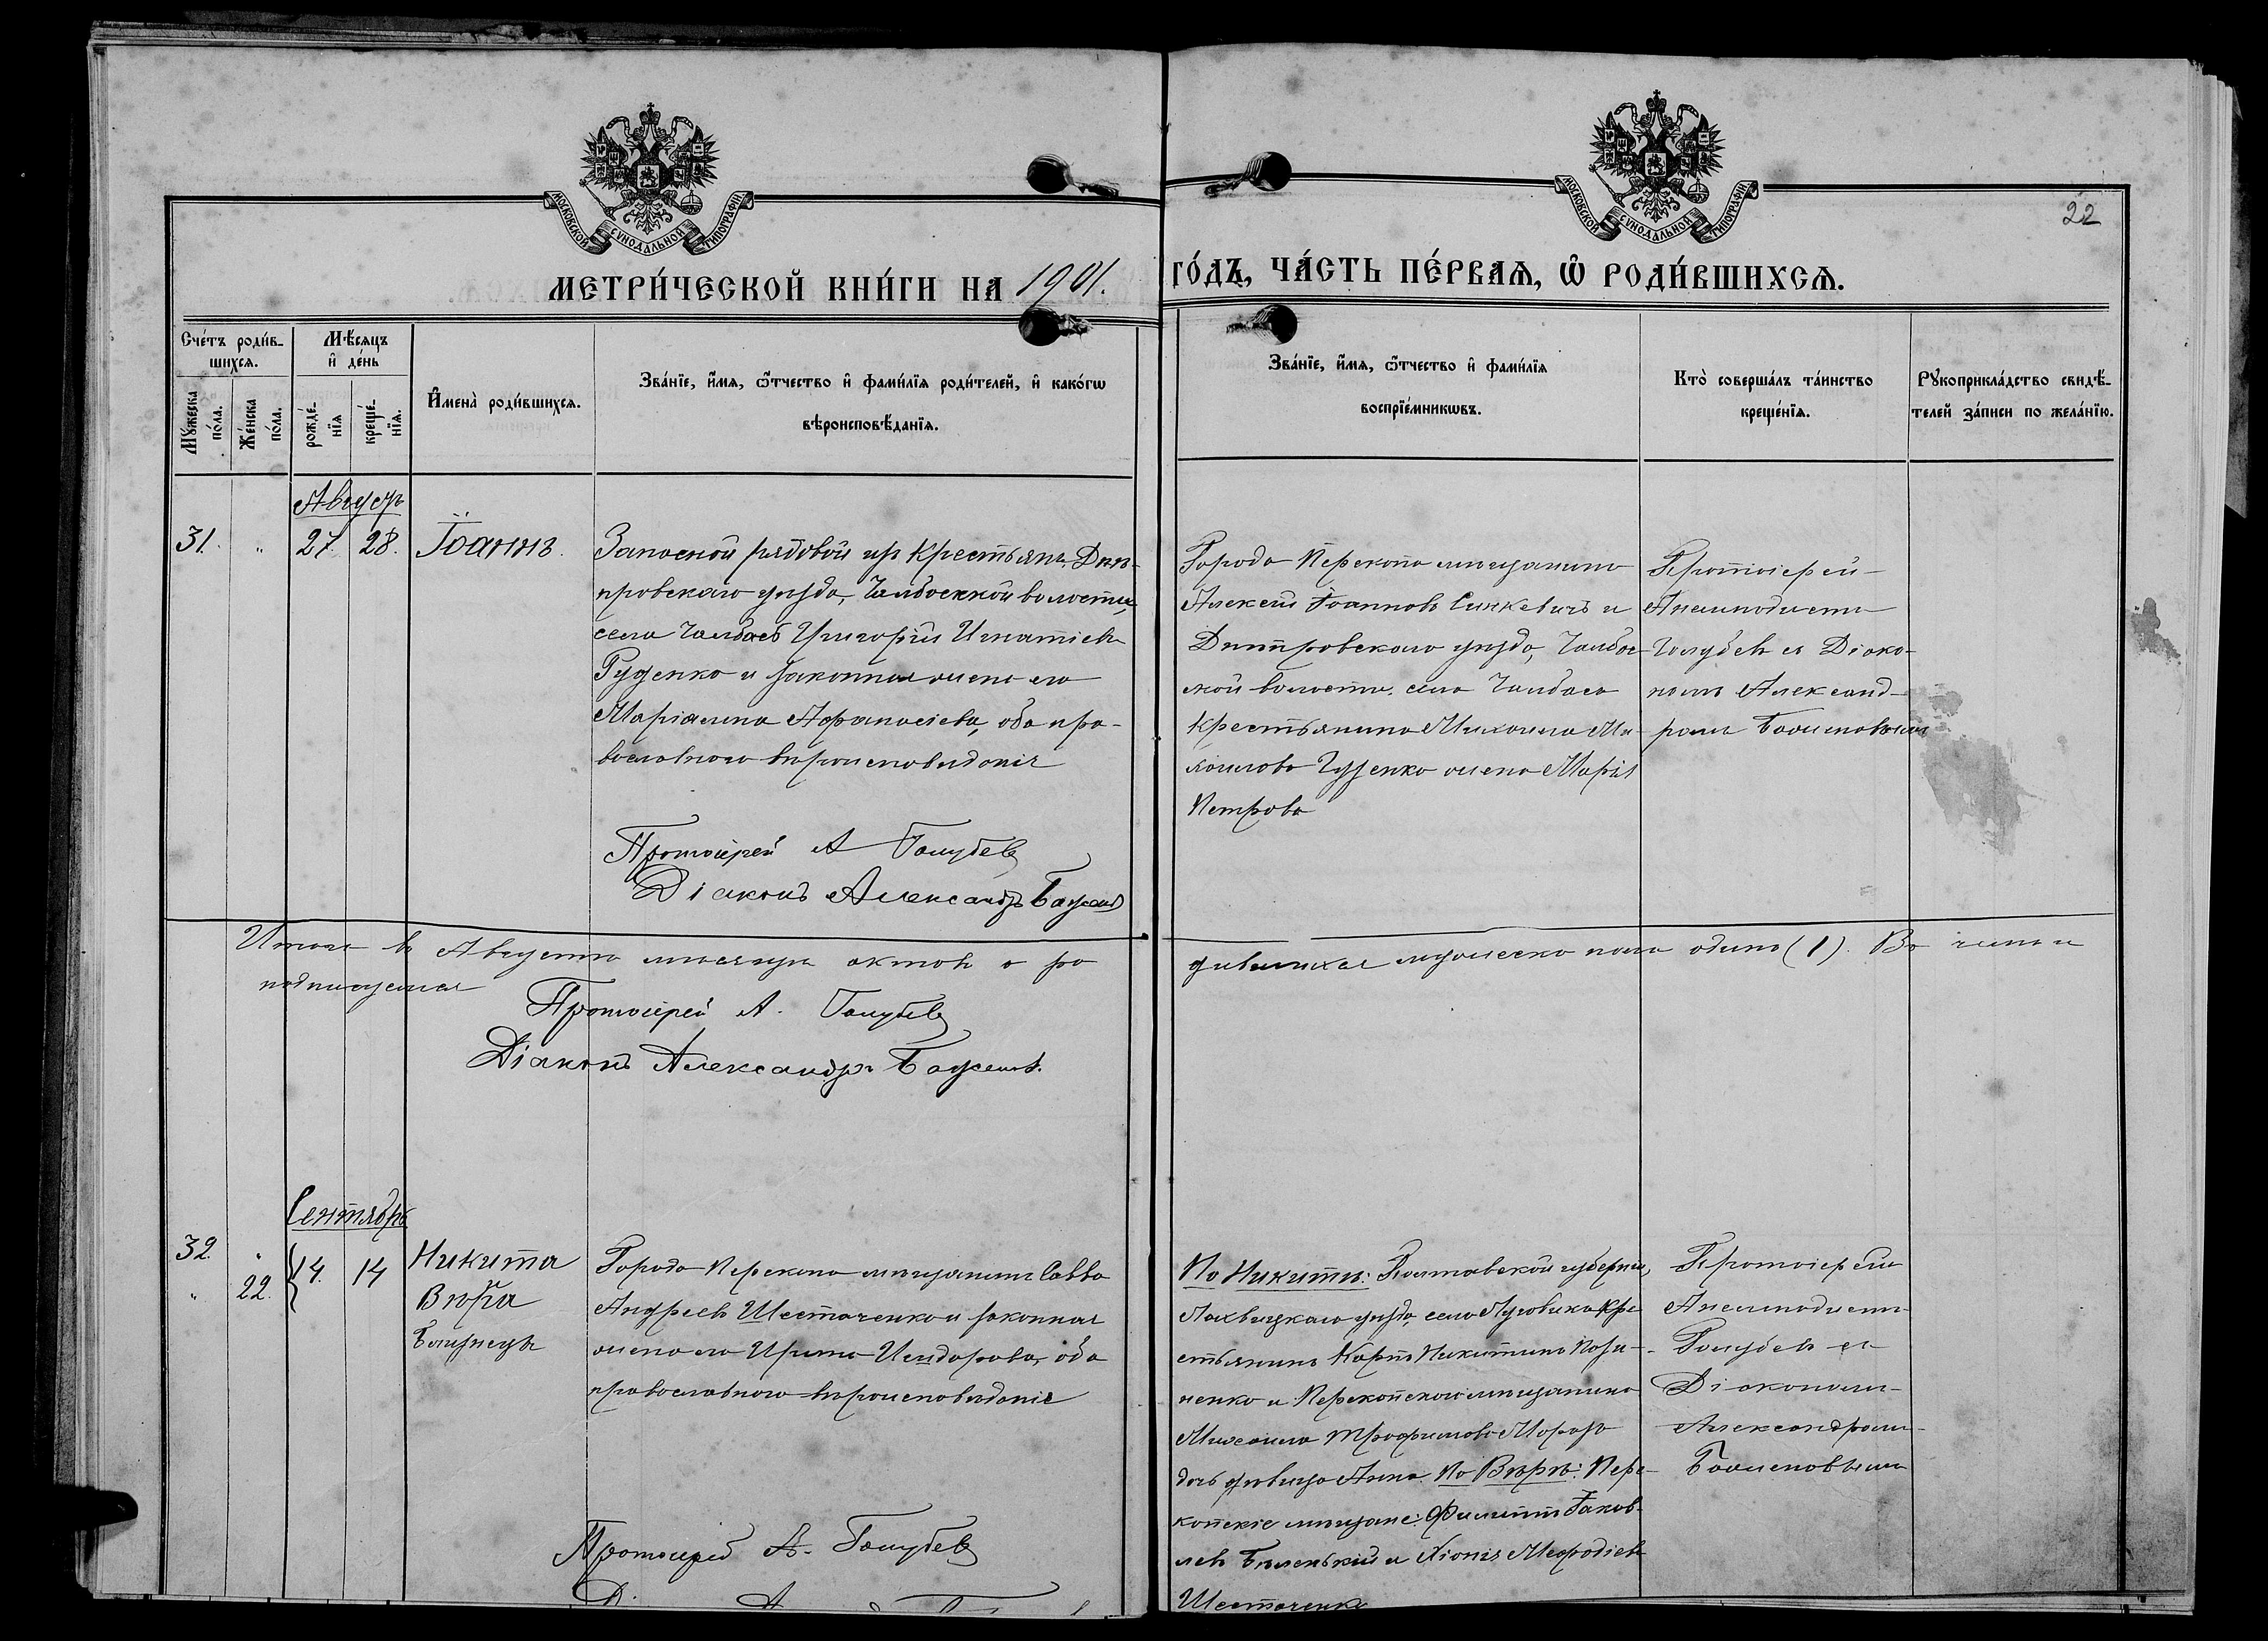 МОСКОВСКОЙ СѴНОДАЛЬНОЙ ТИПОГРАФІИ
МОСКОВСКОЙ СѴНОДАЛЬНОЙ ТИПОГРАФІИ
22
МЕТРИ́ЧЕСКОЙ КНИ́ГИ НА 1901.
ГО́ДЪ, ЧА́СТЬ ПЕ́РВАѦ, Ѡ҆ РОДИ́ВШИХСѦ.
Сче́тъ роди́в-
шихсѧ.
Мꙋ́жеска
по́ла.
Же́нска
по́ла.
Мѣ́сѧцъ
и҆ де́нь
рожде́-
нїѧ
креще́-
нїѧ.
И҆мена̀ роди́вшихсѧ.
Зва́нїе, и҆́мѧ, ѻ҆́тчество и҆ фами́лїѧ роди́телей, и҆ како́гѡ
вѣроисповѣ́данїѧ.
Зва́нїе, и҆́мѧ, ѻ҆́тчество и҆ фами́лїѧ
воспрїе́мникѡвъ.
Кто̀ соверша́лъ та́инство
креще́нїѧ.
Рꙋкоприкла́дство свидѣ́-
телей за́писи по жела́нїю.
Августъ
31. „ 27. 28. Іоаннъ.
Запасной рядовой изъ крестьянъ Днѣ-
провскаго уѣзда, Чалбасской волости,
села Чалбасъ Григорій Игнатіевъ
Руденко и законная жена его
Маріамна Афанасіева, оба пра-
вославнаго вѣроисповѣданія
Протоіерей А Голубевъ
Діаконъ Александръ Баженовъ
Города Перекопа мѣщанинъ
Алексѣй Іоанновъ Синкевичъ и
Днѣпровскаго уѣзда, Чалбас-
ской волости села Чалбасъ
крестьянина Михаила Ми-
хаилова Гуженко жена Марія
Петрова
Протоіерей
Анемподистъ
Голубевъ съ Діако-
номъ Александ-
ромъ Баженовымъ
Итого въ Августѣ мѣсяцѣ актовъ о ро
дившихся мужеска пола одинъ (1). Въ чемъ и
подписуемся
Протоіерей А. Голубевъ
Діаконъ Александръ Баженовъ.
Сентябрь
32. „ 14. 14 Никита
„ 22. Вѣра
Близнецы
Города Перекопа мѣщанинъ Савва
Андреевъ Шестаченко и законная
жена его Ирина Исидорова, оба
православнаго вѣроисповѣданія
Протоіерей А. Голубевъ
По Никитѣ: Полтавской губерніи,
Лохвицкаго уѣзда, села Луговика кре
стьянинъ Карпъ Никитинъ
ненко и Перекопскаго мѣщанина
Михаила Трофимова Морозъ
дочь дѣвица Анна. По Вѣрѣ: Пере-
копскіе мѣщане: Филиппъ Іаков-
левъ Бѣленькій и Хіонія Мефодіева
Шестаченко
Протоіерей
Анемподистъ
Голубевъ съ
Діакономъ
Александромъ
Баженовымъ